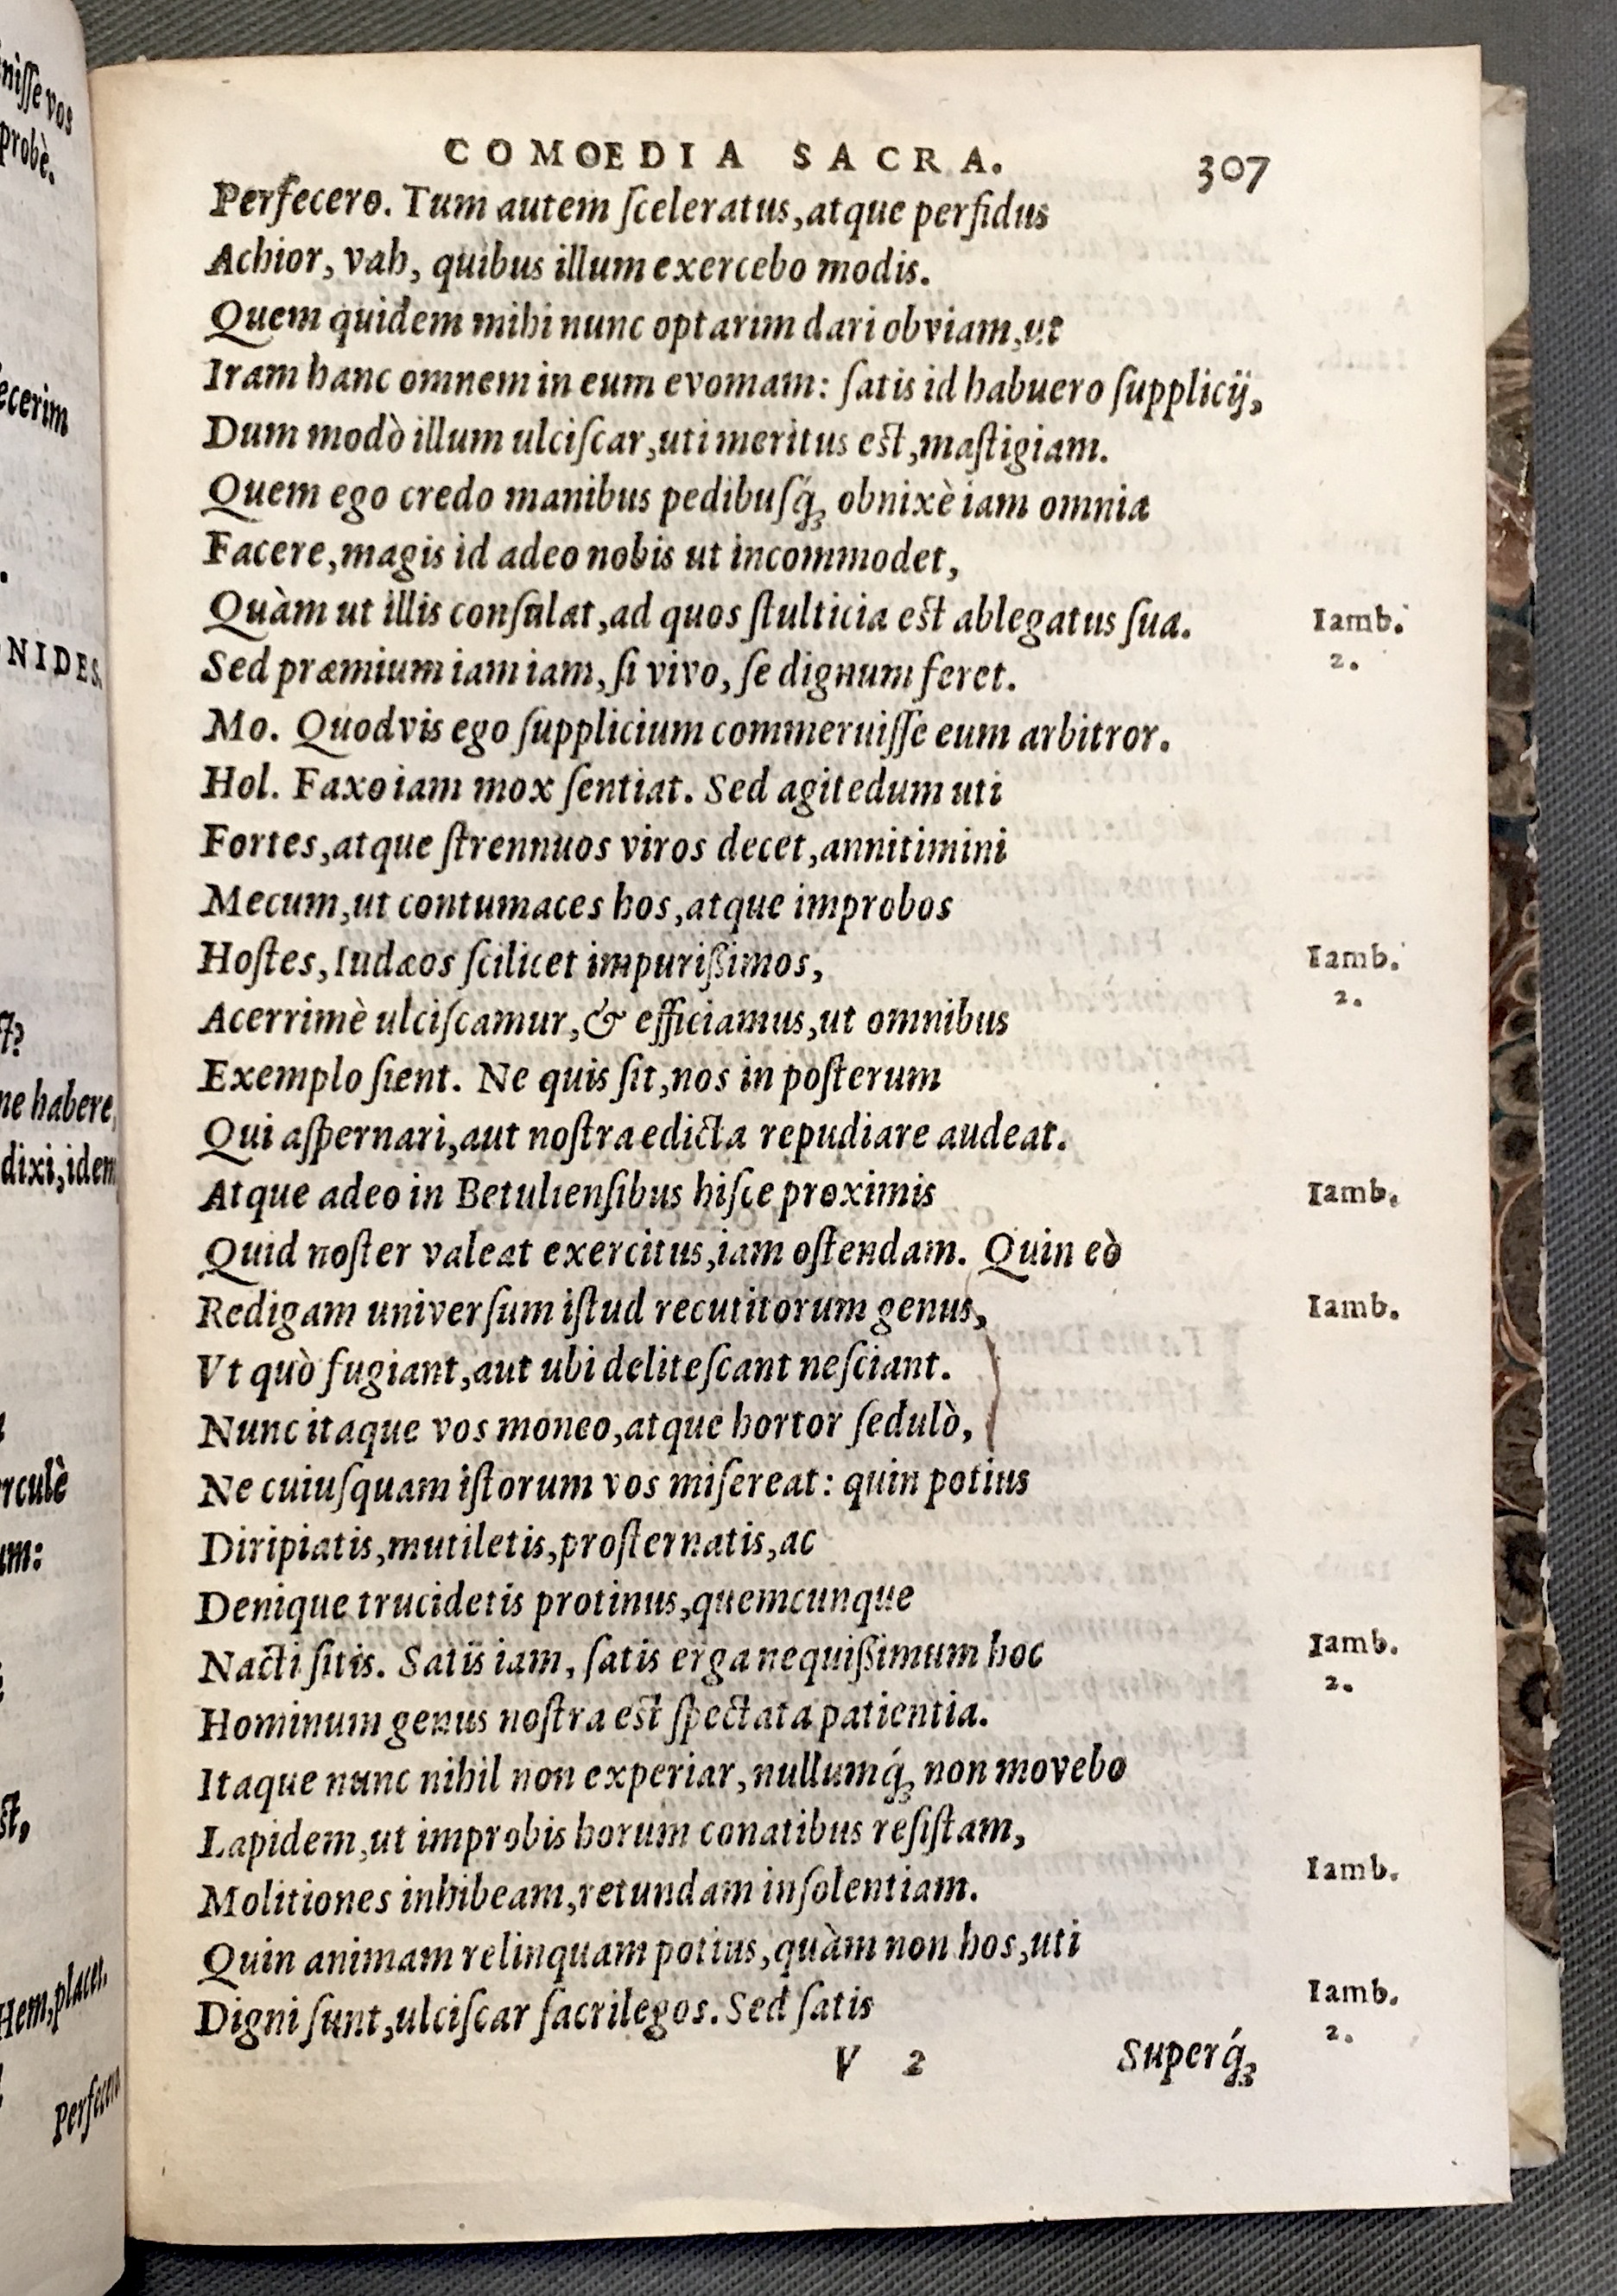 niſſe vos
probè.
ecerim
NIDES.
ne habere,
dixi, idem
rculè
um:
Hem, placet.
Perfecero
COMOEDIA SACRA. 307
Perfecero. Tum autem ſceleratus, atque perfidus
Achior, vah, quibus illum exercebo modis.
Quem quidem mihi nunc optarim dari obviam, ut
Iram hanc omnem in eum evomam: ſatis id habuero ſupplicij,
Dum modò illum ulciſcar, uti meritus eſt, maſtigiam.
Quem ego credo manibus pedibuſq́; obnixè iam omnia
Facere, magis id adeo nobis ut incommodet,
Quàm ut illis conſulat, ad quos ſtulticia eſt ablegatus ſua. Iamb. 2.
Sed præmium iam iam, ſi vivo, ſe dignum feret.
Mo. Quodvis ego ſupplicium commeruiſſe eum arbitror.
Hol. Faxo iam mox ſentiat. Sed agitedum uti
Fortes, atque ſtrennuos viros decet, annitimini
Mecum, ut contumaces hos, atque improbos
Hoſtes, Iudæos ſcilicet impurißimos, Iamb. 2.
Acerrimè ulciſcamur, & efficiamus, ut omnibus
Exemplo ſient. Ne quis ſit, nos in poſterum
Qui aſpernari, aut noſtra edicta repudiare audeat.
Atque adeo in Betulienſibus hiſce proximis Iamb.
Quid noſter valeat exercitus, iam oſtendam. Quin eò
Redigam univerſum iſtud recutitorum genus, Iamb.
Vt quò fugiant, aut ubi deliteſcant neſciant.
Nunc itaque vos moneo, atque hortor ſedulò,
Ne cuiuſquam iſtorum vos miſereat: quin potius
Diripiatis, mutiletis, proſternatis, ac
Denique trucidetis protinus, quemcunque
Nacti ſitis. Satis iam, ſatis erga nequißimum hoc Iamb. 2.
Hominum genus noſtra eſt ſpectata patientia.
Itaque nunc nihil non experiar, nullumq́; non movebo
Lapidem, ut improbis horum conatibus reſiſtam,
Molitiones inhibeam, retundam inſolentiam. Iamb.
Quin animam relinquam potius, quàm non hos, uti
Digni ſunt, ulciſcar ſacrilegos. Sed ſatis Iamb. 2.
V 2 Superq́;